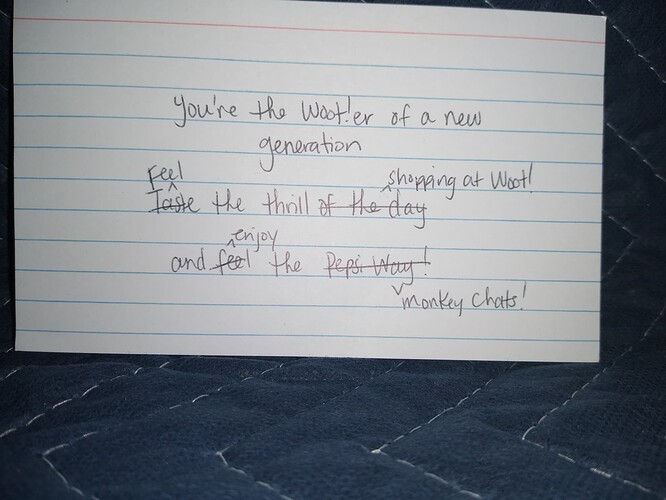 You're the Woot!er of a new
generation
Feel
shopping at Woot!
Taste the thrill of the day
enjoy
and feel the Pepsi Way!
monkey Chats!